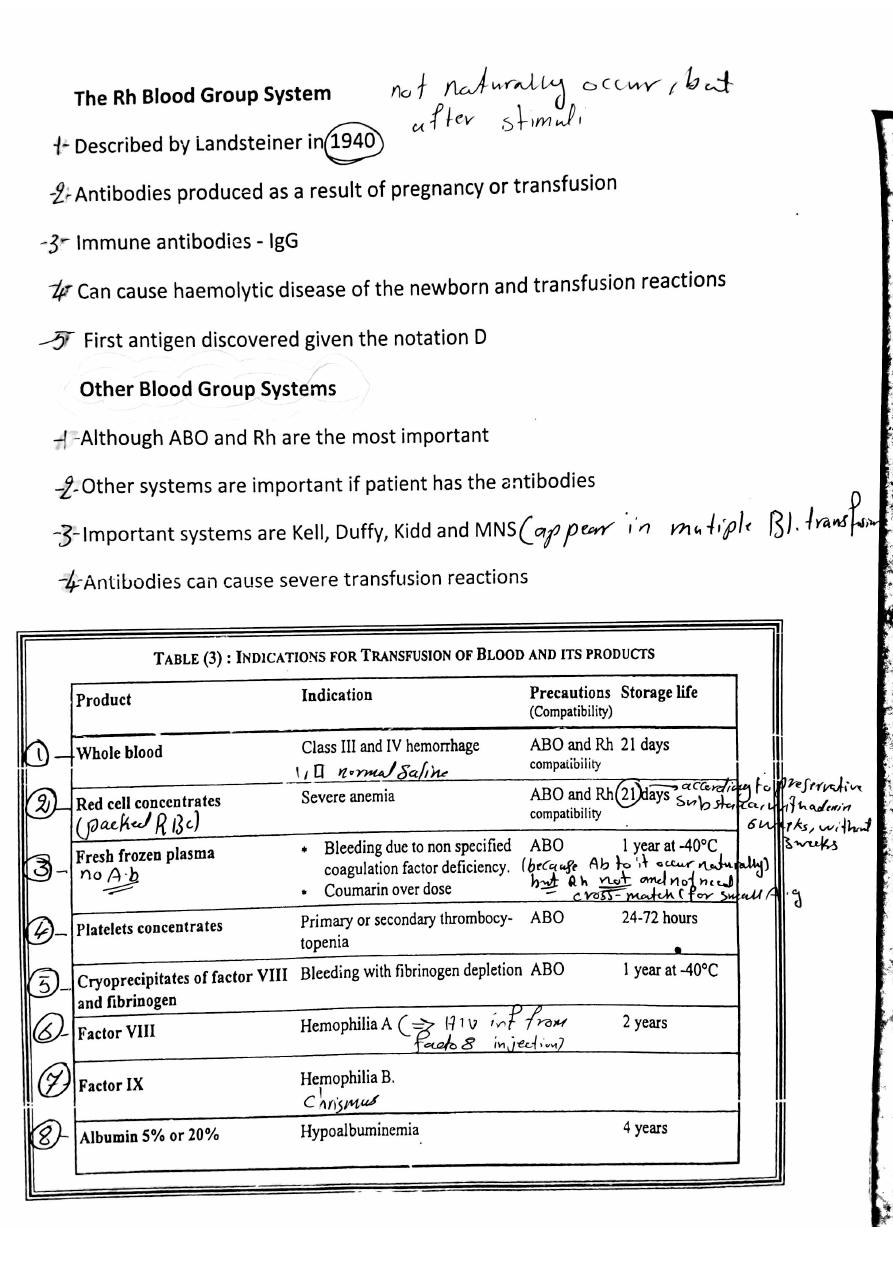 The Rh Blood Group System
not naturally occur, but
after stimuli
1- Described by Landsteiner in 1940
-2- Antibodies produced as a result of pregnancy or transfusion
-3- Immune antibodies - IgG
4- Can cause haemolytic disease of the newborn and transfusion reactions
-5- First antigen discovered given the notation D
Other Blood Group Systems
-1-Although ABO and Rh are the most important
-2-Other systems are important if patient has the antibodies
-3-Important systems are Kell, Duffy, Kidd and MNS (appear in mutiple Bl. transfusion
-4-Antibodies can cause severe transfusion reactions
TABLE (3) : INDICATIONS FOR TRANSFUSION OF BLOOD AND ITS PRODUCTS
Product Indication Precautions Storage life
(Compatibility)
1 Whole blood Class III and IV hemorrhage ABO and Rh 21 days
normal Saline compatibility
2 Red cell concentrates Severe anemia ABO and Rh 21 days according to preservative
(packed R Bc) compatibility substance, with adenin
6 weeks, without
3 weeks
3 Fresh frozen plasma • Bleeding due to non specified ABO 1 year at -40°C
no A.b coagulation factor deficiency. (because Ab to it occur naturally)
• Coumarin over dose but Rh not and not need
cross-match (for small A.g
4 Platelets concentrates Primary or secondary thrombocy- ABO 24-72 hours
topenia
5 Cryoprecipitates of factor VIII Bleeding with fibrinogen depletion ABO 1 year at -40°C
and fibrinogen
6 Factor VIII Hemophilia A (⇒ HIV inf from 2 years
facto 8 injection)
7 Factor IX Hemophilia B.
Chrismus
8 Albumin 5% or 20% Hypoalbuminemia 4 years